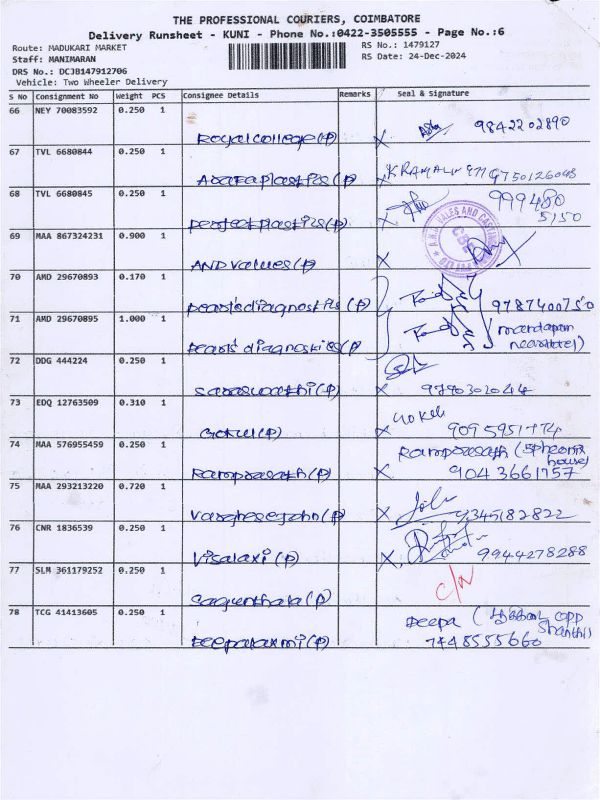 THE PROFESSIONAL COURIERS, COIMBATORE
Delivery Runsheet - KUNI - Phone No.:0422-3505555 - Page No.:6
Route: MADUKARI MARKET RS No.: 1479127
Staff: MANIMARAN RS Date: 24-Dec-2024
DRS No.: DCJB147912706
Vehicle: Two Wheeler Delivery
S No Consignment No Weight PCS Consignee Details Remarks Seal & Signature
66 NEY 70083592 0.250 1
Royal college (P) X 9842202890
67 TVL 6680844 0.250 1
plastics (P) X
68 TVL 6680845 0.250 1 999480
perfect plastics (P) X 5150
69 MAA 867324231 0.900 1
AND values (P) X
70 AMD 29670893 0.170 1
diagnostics (P) 9787400750
71 AMD 29670895 1.000 1
diagnostics (P)
72 DDG 444224 0.250 1
Saraswathi (P) X 9790302044
73 EDQ 12763509 0.310 1 Gokul
Gokul (P) X 9095951774
74 MAA 576955459 0.250 1 Ramprasath
house)
Ramprasath (P) X 9043661757
75 MAA 293213220 0.720 1
Varghese John (P) X 9345182822
76 CNR 1836539 0.250 1
Visalaxi (P) X 9944278288
77 SLM 361179252 0.250 1
Sagunthala (P)
78 TCG 41413605 0.250 1 Deepa ( opp
Shanthi)
Deepalaxmi (P) 7448555660